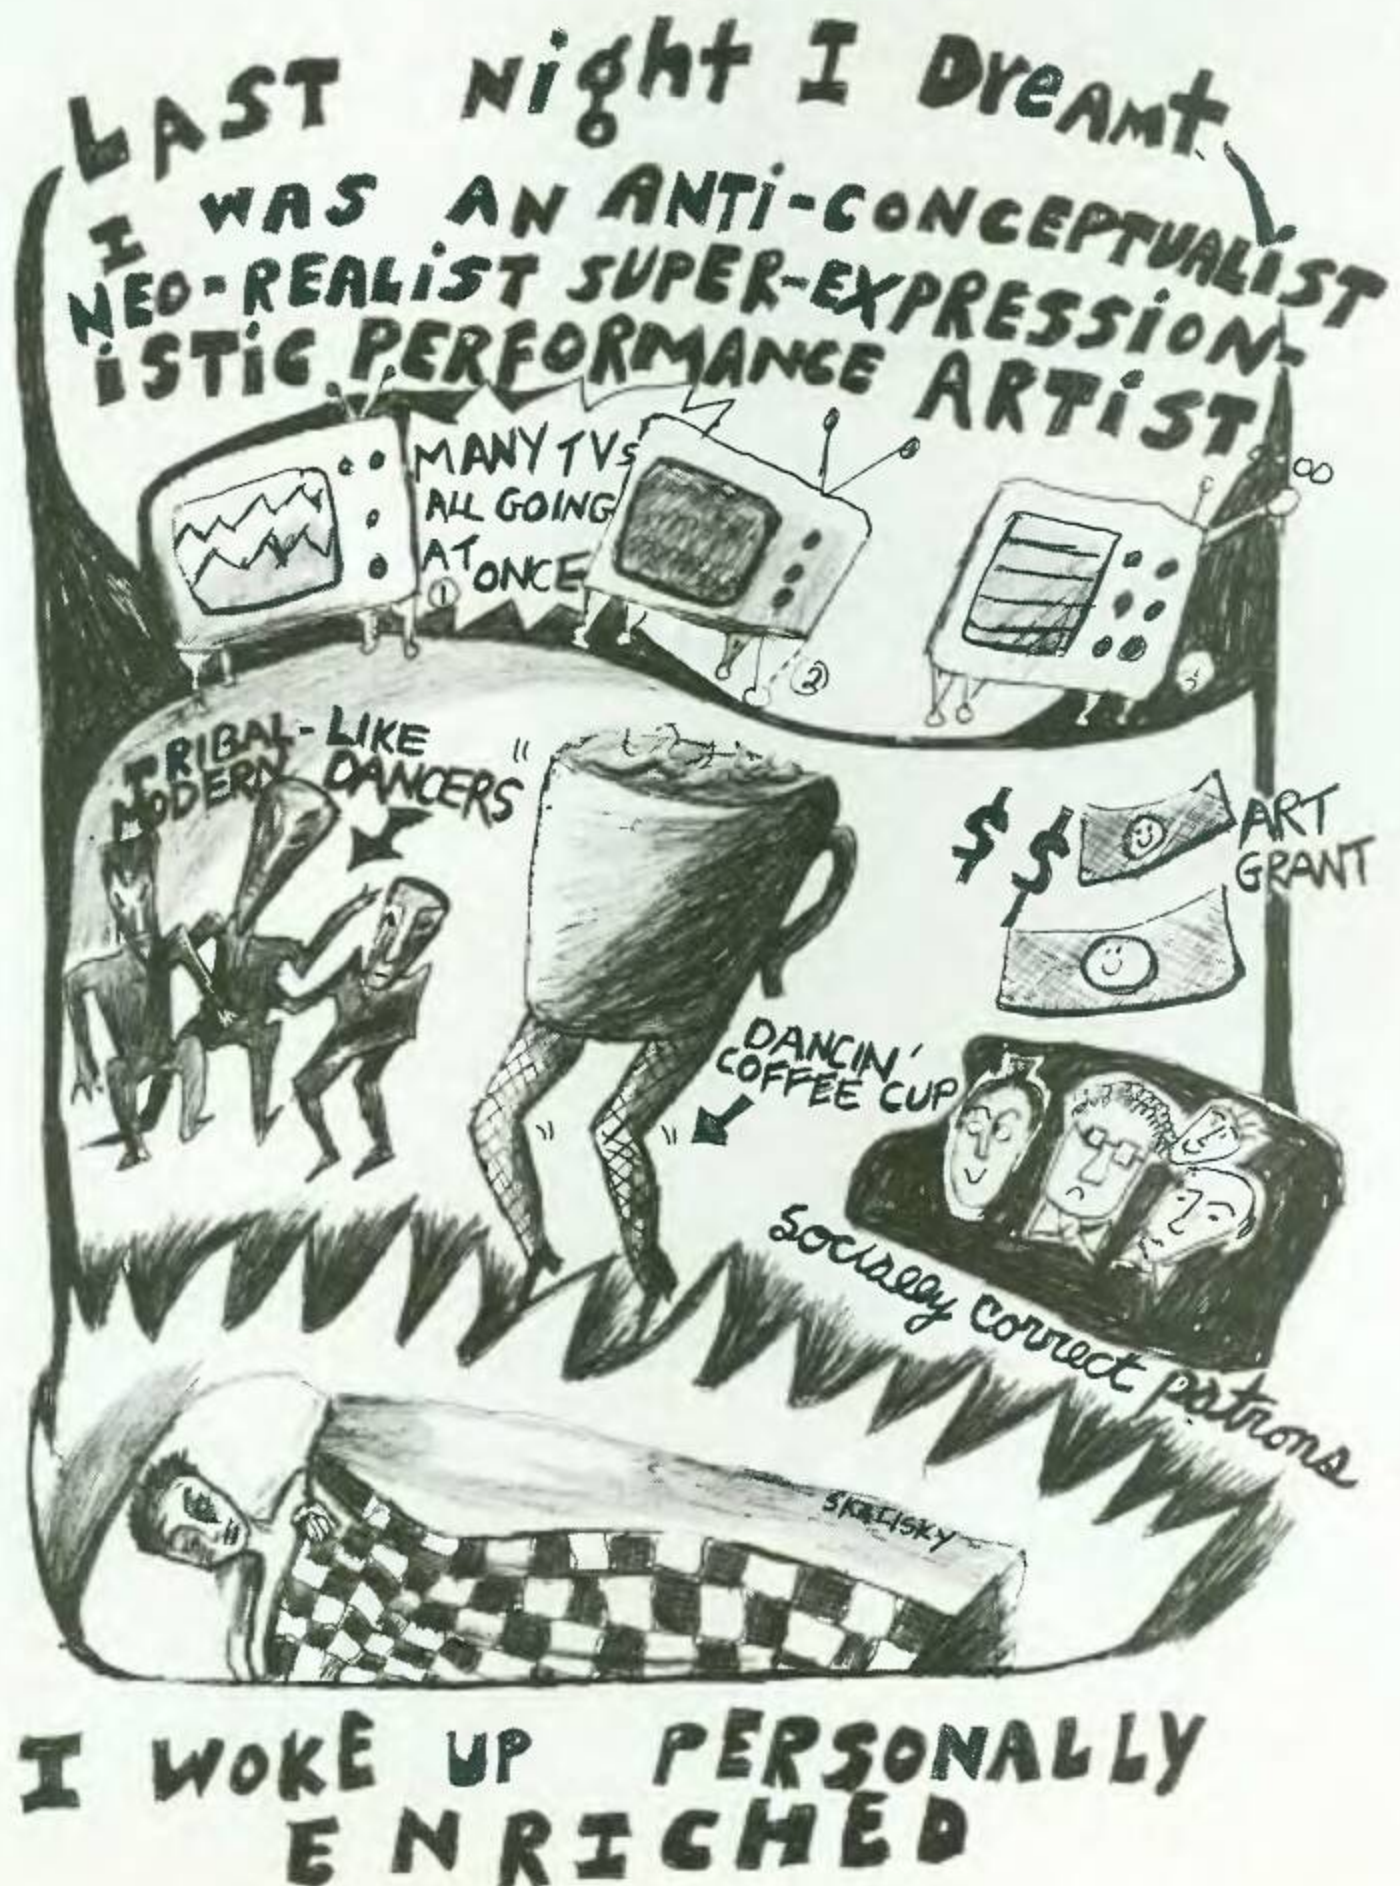 LAST Night I DreAmt
I WAS AN ANTi-CONCEPTUALiST
NEO-REALiST SUPER-EXPRESSiON-
iSTiC PERFORMANCE ARTiST
MANY TVs
ALL GOING
AT ONCE
1
2
TRIBAL-LIKE
MODERN DANCERS
$ $
ART
GRANT
DANCIN'
COFFEE CUP
socially correct patrons
I WOKE UP PERSONALLY
ENRICHED